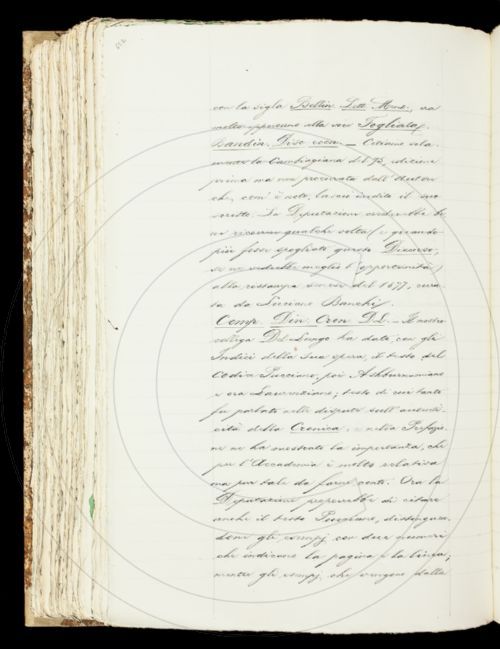 con la sigla Bellin. Lett. Mus., era
molto opportuno alla voce Togliata.
Bandin. Disc. econ. — Citiamo sola-
mente la Cambiagiana del 75, edizione
prima ma non procurata dall'Autore
che, com'è noto, lasciò inedito il suo
scritto. La Deputazione crederebbe
se ricorresse qualche volta e quando
più fosse spogliato questo Discorso,
se ne vedrebbe meglio l'opportunità
alla ristampa senese del 1877, cura-
ta da Luciano Banchi.
Comp. Din. Cron. D.L. — Il nostro
collega Del Lungo ha dato con gli
Indici della sua opera, il testo del
Codice Pucciano, poi Ashburnamiano
e ora Laurenziano; testo di cui tanto
fu parlato nelle dispute sull'autenti-
cità della Cronica, e nella Prefazio-
ne ne ha mostrato la importanza, che
per l'Accademia è molto relativa
ma pur tale da farne conto. Ora la
Deputazione proporrebbe di citare
anche il testo Pucciano, distinguen-
done gli esempj con due numeri
che indicano la pagina e la linea;
mentre gli esempj che vengono dalla